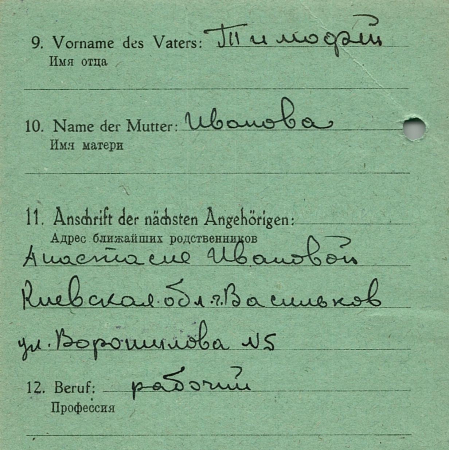 9. Vorname des Vaters: Тимофей
Имя отца
10. Name der Mutter: Иванова
Имя матери
11. Anschrift der nächsten Angehörigen:
Адрес ближайших родственников
Анастасие Ивановой
Киевская обл. г. Васильков
ул. Ворошилова N5
12. Beruf: рабочий
Профессия